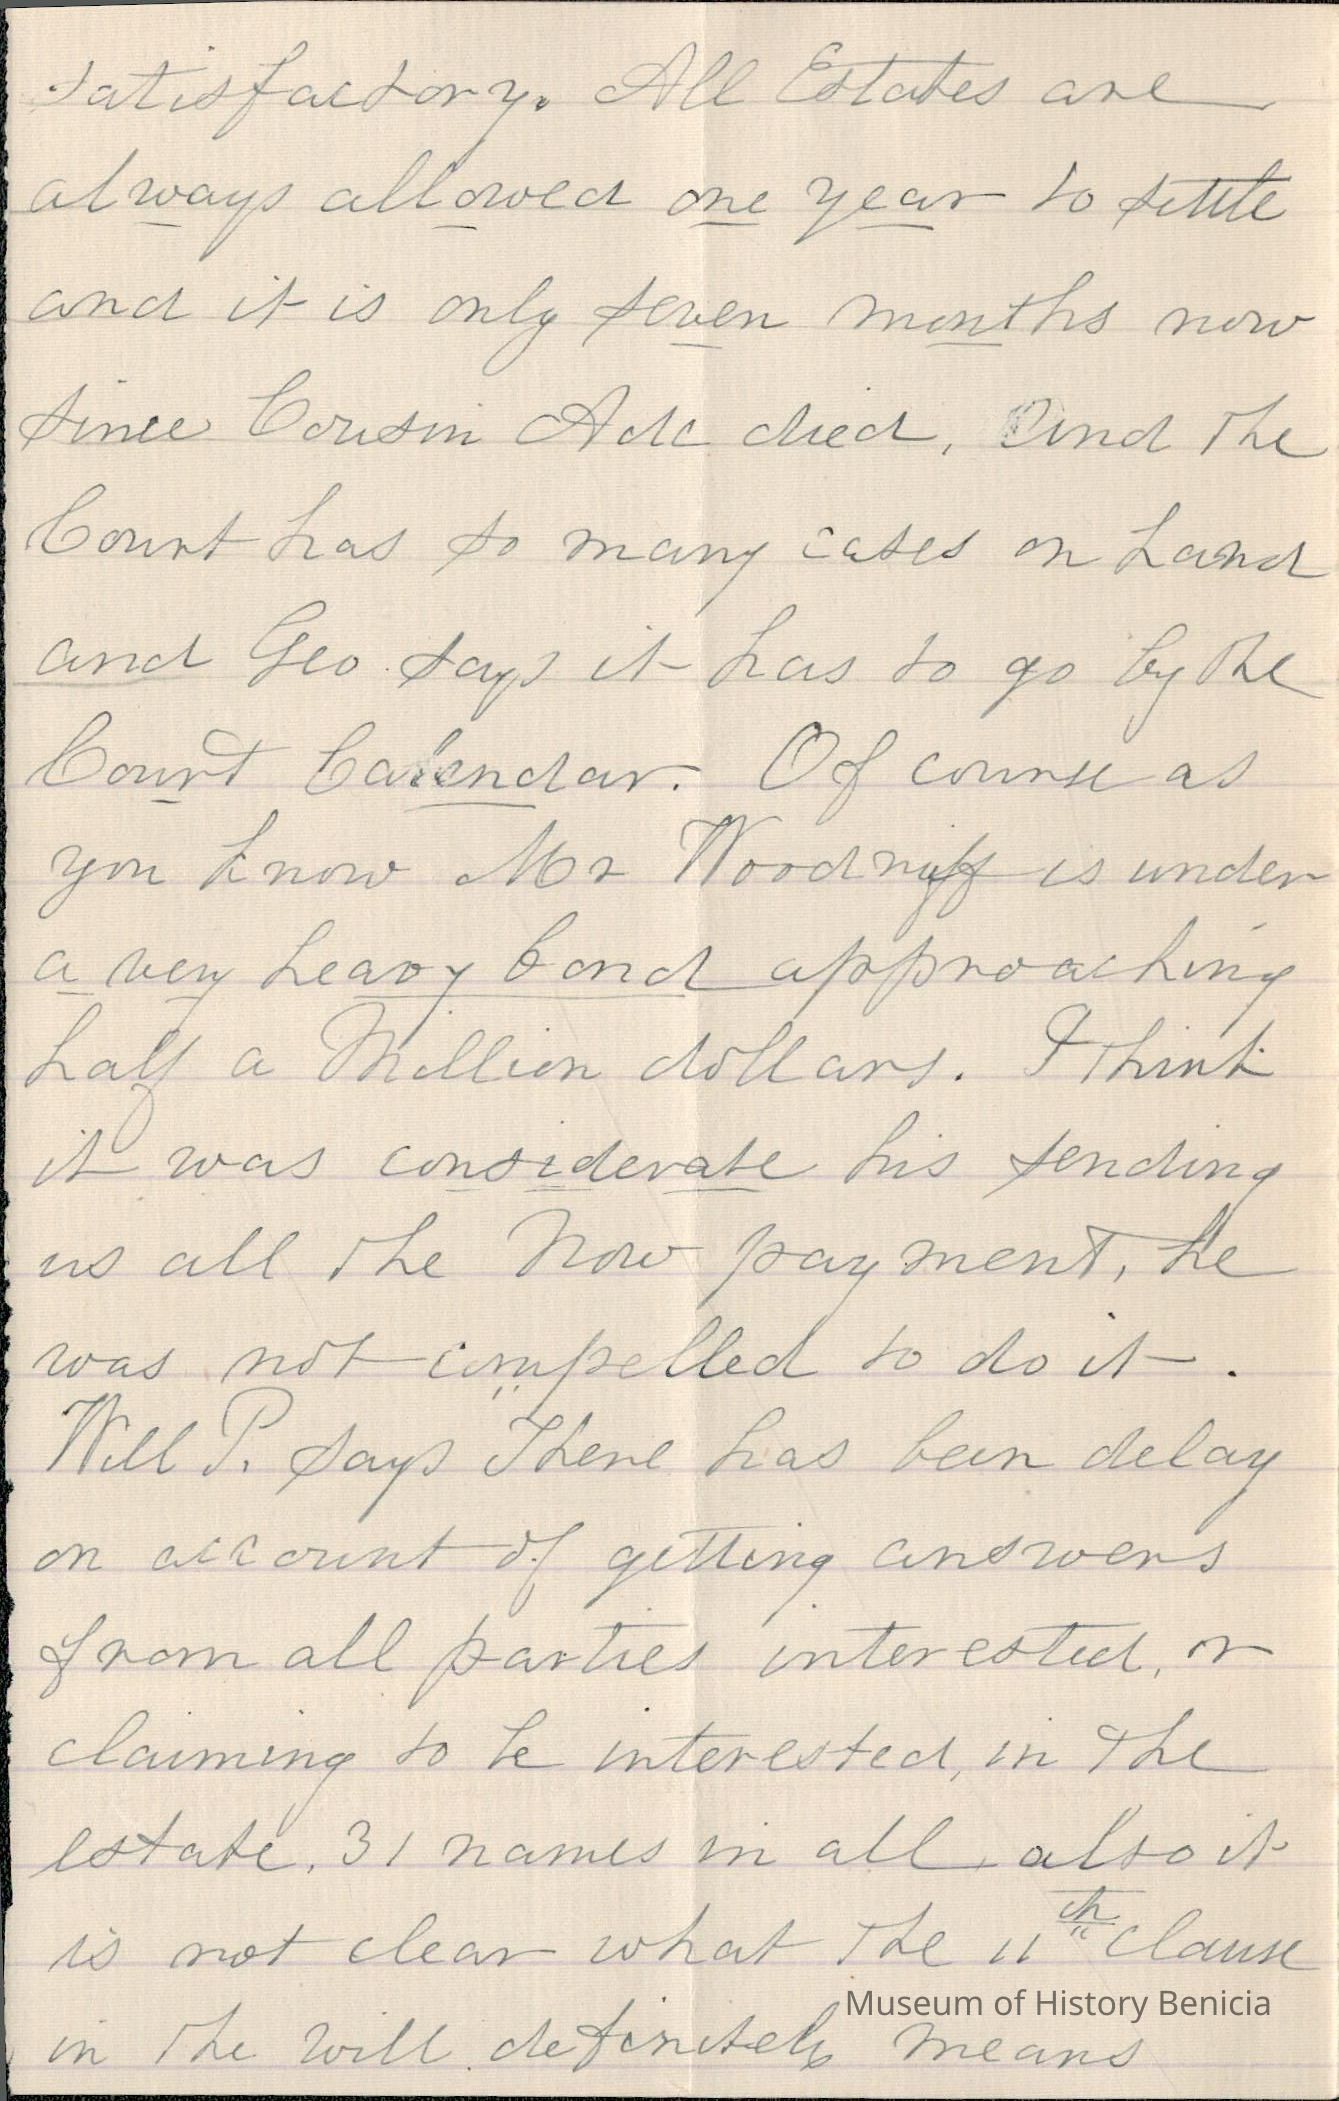 satisfactory. All Estates are
always allowed one year to settle
and it is only seven months now
since Cousin Ade died, And the
Court has so many cases on hand
and Geo. says it has to go by the
Court Calendar. Of course as
you know Mr Woodruff is under
a very heavy bond approaching
half a Million dollars. I think
it was considerate his sending
us all the Nov payment, he
was not compelled to do it.
Will P. says "There has been delay
on account of getting answers
from all parties interested, or
claiming to be interested, in the
estate. 31 names in all also it
is not clear what the 11th clause
Museum of History Benicia
in the will definitely means